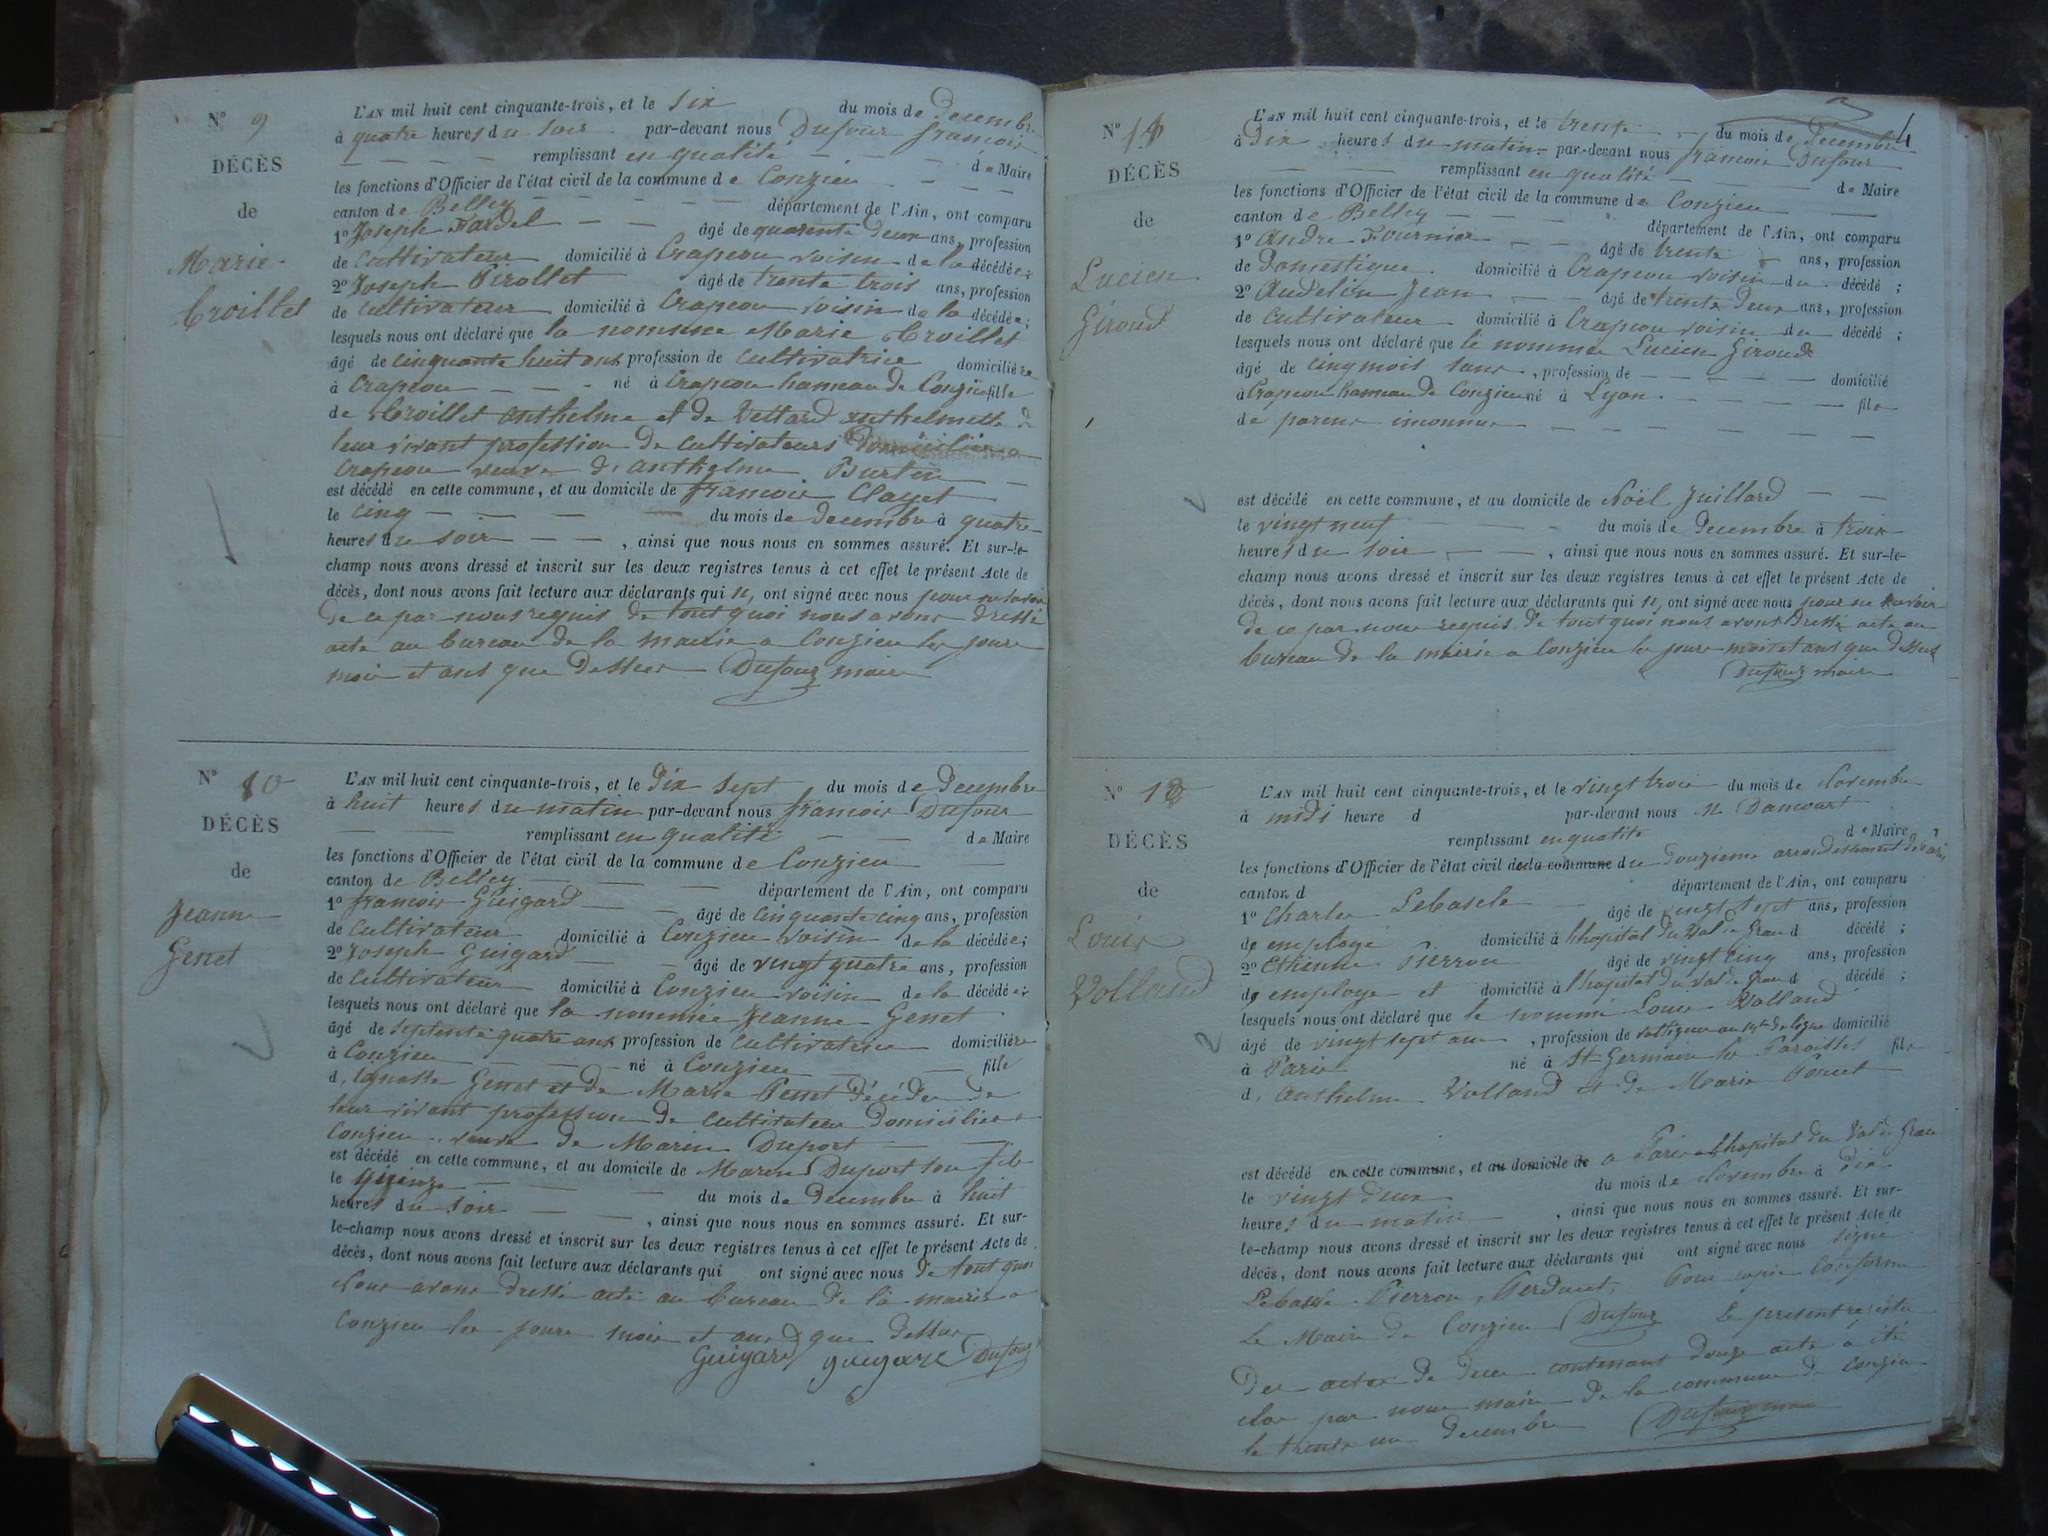 N° 9
DÉCÈS
de
Marie
Croillet
L'AN mil huit cent cinquante-trois, et le six du mois de Decembre
à quatre heures du soir par-devant nous Dufour francois
remplissant en qualité de Maire
les fonctions d'Officier de l'état civil de la commune de Conzieu
canton de Belley département de l'Ain, ont comparu
1° Joseph Fardel âgé de quarente deux ans, profession
de Cultivateur domicilié à Crapeou voisin de la décédée;
2° Joseph Pirollet âgé de trente trois ans, profession
de Cultivateur domicilié à Crapeou voisin de la décédée;
lesquels nous ont déclaré que la nommee Marie Croillet
âgé de cinquante huit ans profession de Cultivatrice domiciliée
à Crapeou né à Crapeou hameau de Conzieu fille
de Croillet anthelme et de Vettard anthelmette de
leur vivant profession de cultivateurs
Crapeou veuve de anthelme Burtin
est décédé en cette commune, et au domicile de francois Clayet
le cinq du mois de decembre à quatre
heures du soir, ainsi que nous nous en sommes assuré. Et sur-le-
champ nous avons dressé et inscrit sur les deux registres tenus à cet effet le présent Acte de
décès, dont nous avons fait lecture aux déclarants qui n, ont signé avec nous pour ne savoir
de ce par nous requis de tout quoi nous avons dressé
acte au bureau de la mairie a Conzieu les jours
mois et ans que dessus Dufour maire
N° 10
DÉCÈS
de
Jeanne
Genet
L'AN mil huit cent cinquante-trois, et le dix sept du mois de Decembre
à huit heures du matin par-devant nous francois Dufour
remplissant en qualité de Maire
les fonctions d'Officier de l'état civil de la commune de Conzieu
canton de Belley département de l'Ain, ont comparu
1° francois Guigard âgé de cinquante cinq ans, profession
de Cultivateur domicilié à Conzieu voisin de la décédée;
2° Joseph Guigard âgé de vingt quatre ans, profession
de Cultivateur domicilié à Conzieu voisin de la décédée;
lesquels nous ont déclaré que la nommée Jeanne Genet
âgé de septente quatre ans profession de Cultivateur domiciliée
à Conzieu né à Conzieu fille
d, Genet et de Marie Penet décédes de
leur vivant profession de Cultivateur domiciliée a
Conzieu veuve de Marin Duport
est décédé en cette commune, et au domicile de Marin Duport son fils
le quinze du mois de Decembre à huit
heures du soir, ainsi que nous nous en sommes assuré. Et sur-
le-champ nous avons dressé et inscrit sur les deux registres tenus à cet effet le présent Acte de
décès, dont nous avons fait lecture aux déclarants qui ont signé avec nous De tout quoi
Nous avons dressé acte au bureau de la mairie a
Conzieu les jours mois et ans que dessus
Guigard guigard Dufour
4
N° 11
DÉCÈS
de
Lucien
Giroud
L'AN mil huit cent cinquante-trois, et le trente du mois de Decembre
à Dix heures du matin par-devant nous francois Dufour
remplissant en qualité de Maire
les fonctions d'Officier de l'état civil de la commune de Conzieu
canton de Belley département de l'Ain, ont comparu
1° Andre Fournier âgé de trente ans, profession
de Domestique domicilié à Crapeou voisin du décédé;
2° Audelin Jean âgé de trente deux ans, profession
de Cultivateur domicilié à Crapeou voisin du décédé;
lesquels nous ont déclaré que le nommée Lucien Giroud
âgé de cinq mois sans, profession de domicilié
à Crapeou hameau de Conzieu né à Lyon fils
de parens inconnus
est décédé en cette commune, et au domicile de Noël Juillard
le vingt neuf du mois de Decembre à trois
heures du soir, ainsi que nous nous en sommes assuré. Et sur-le-
champ nous avons dressé et inscrit sur les deux registres tenus à cet effet le présent Acte de
décès, dont nous avons fait lecture aux déclarants qui n, ont signé avec nous pour ne savoir
de ce par nous requis de tout quoi nous avons dressé acte au
bureau de la mairie a Conzieu les jours mois et ans que dessus
Dufour maire
N° 12
DÉCÈS
de
Louis
Volland
L'AN mil huit cent cinquante-trois, et le vingt trois du mois de Novembre
à midi heure d par-devant nous M. Dancourt
remplissant en qualité de Maire
les fonctions d'Officier de l'état civil de la commune du Douzieme arrondissement de Paris
canton d département de l'Ain, ont comparu
1° Charles Lebasele âgé de vingt sept ans, profession
d, employé domicilié à l'hopital du Val de Grace d décédé;
2° Ethienne Pierron âgé de vingt cinq ans, profession
d, employe et domicilié à l'hopital du Val de Grace d décédé;
lesquels nous ont déclaré que le nommé Louis Volland
âgé de vingt sept ans, profession de voltigeur au de ligne domicilié
à Paris né à St Germain les Paroisses fils
d, Anthelme Volland et de Marie
est décédé en cette commune, et au domicile de a Paris a l'hopital du Val de Grace
le vingt deux du mois de Novembre à dix
heures du matin, ainsi que nous nous en sommes assuré. Et sur-
le-champ nous avons dressé et inscrit sur les deux registres tenus à cet effet le présent Acte de
décès, dont nous avons fait lecture aux déclarants qui ont signé avec nous signé
Pierron, Pour copie Conforme
Le Maire de Conzieu Dufour Le present registre
des actes de deces contenant douze acte a été
clos par nous maire de la commune de Conzieu
le trente un decembre Dufour maire